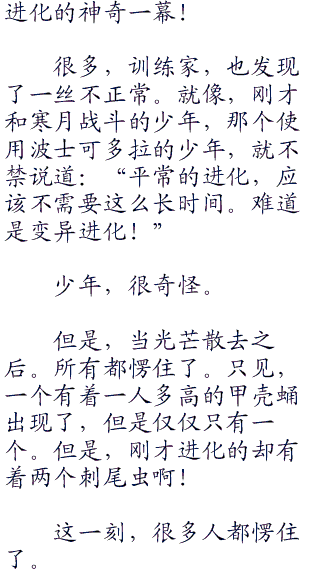 进化的神奇一幕！
很多，训练家，也发现
了一丝不正常。就像，刚才
和寒月战斗的少年，那个使
用波士可多拉的少年，就不
禁说道：“平常的进化，应
该不需要这么长时间。难道
是变异进化！”
少年，很奇怪。
但是，当光芒散去之
后。所有都愣住了。只见，
一个有着一人多高的甲壳蛹
出现了，但是仅仅只有一
个。但是，刚才进化的却有
着两个刺尾虫啊！
这一刻，很多人都愣住
了。